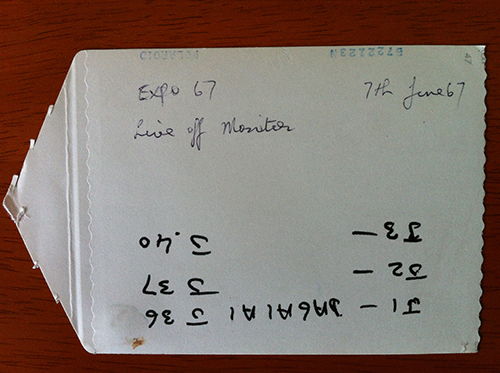 POLAROID
EXPO 67 7th June 67
Live off Monitor
J1 – J 36
J2 – J 37
J3 – J.40